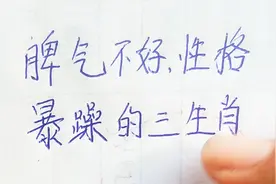 脾气不好、性格
暴躁的三生肖